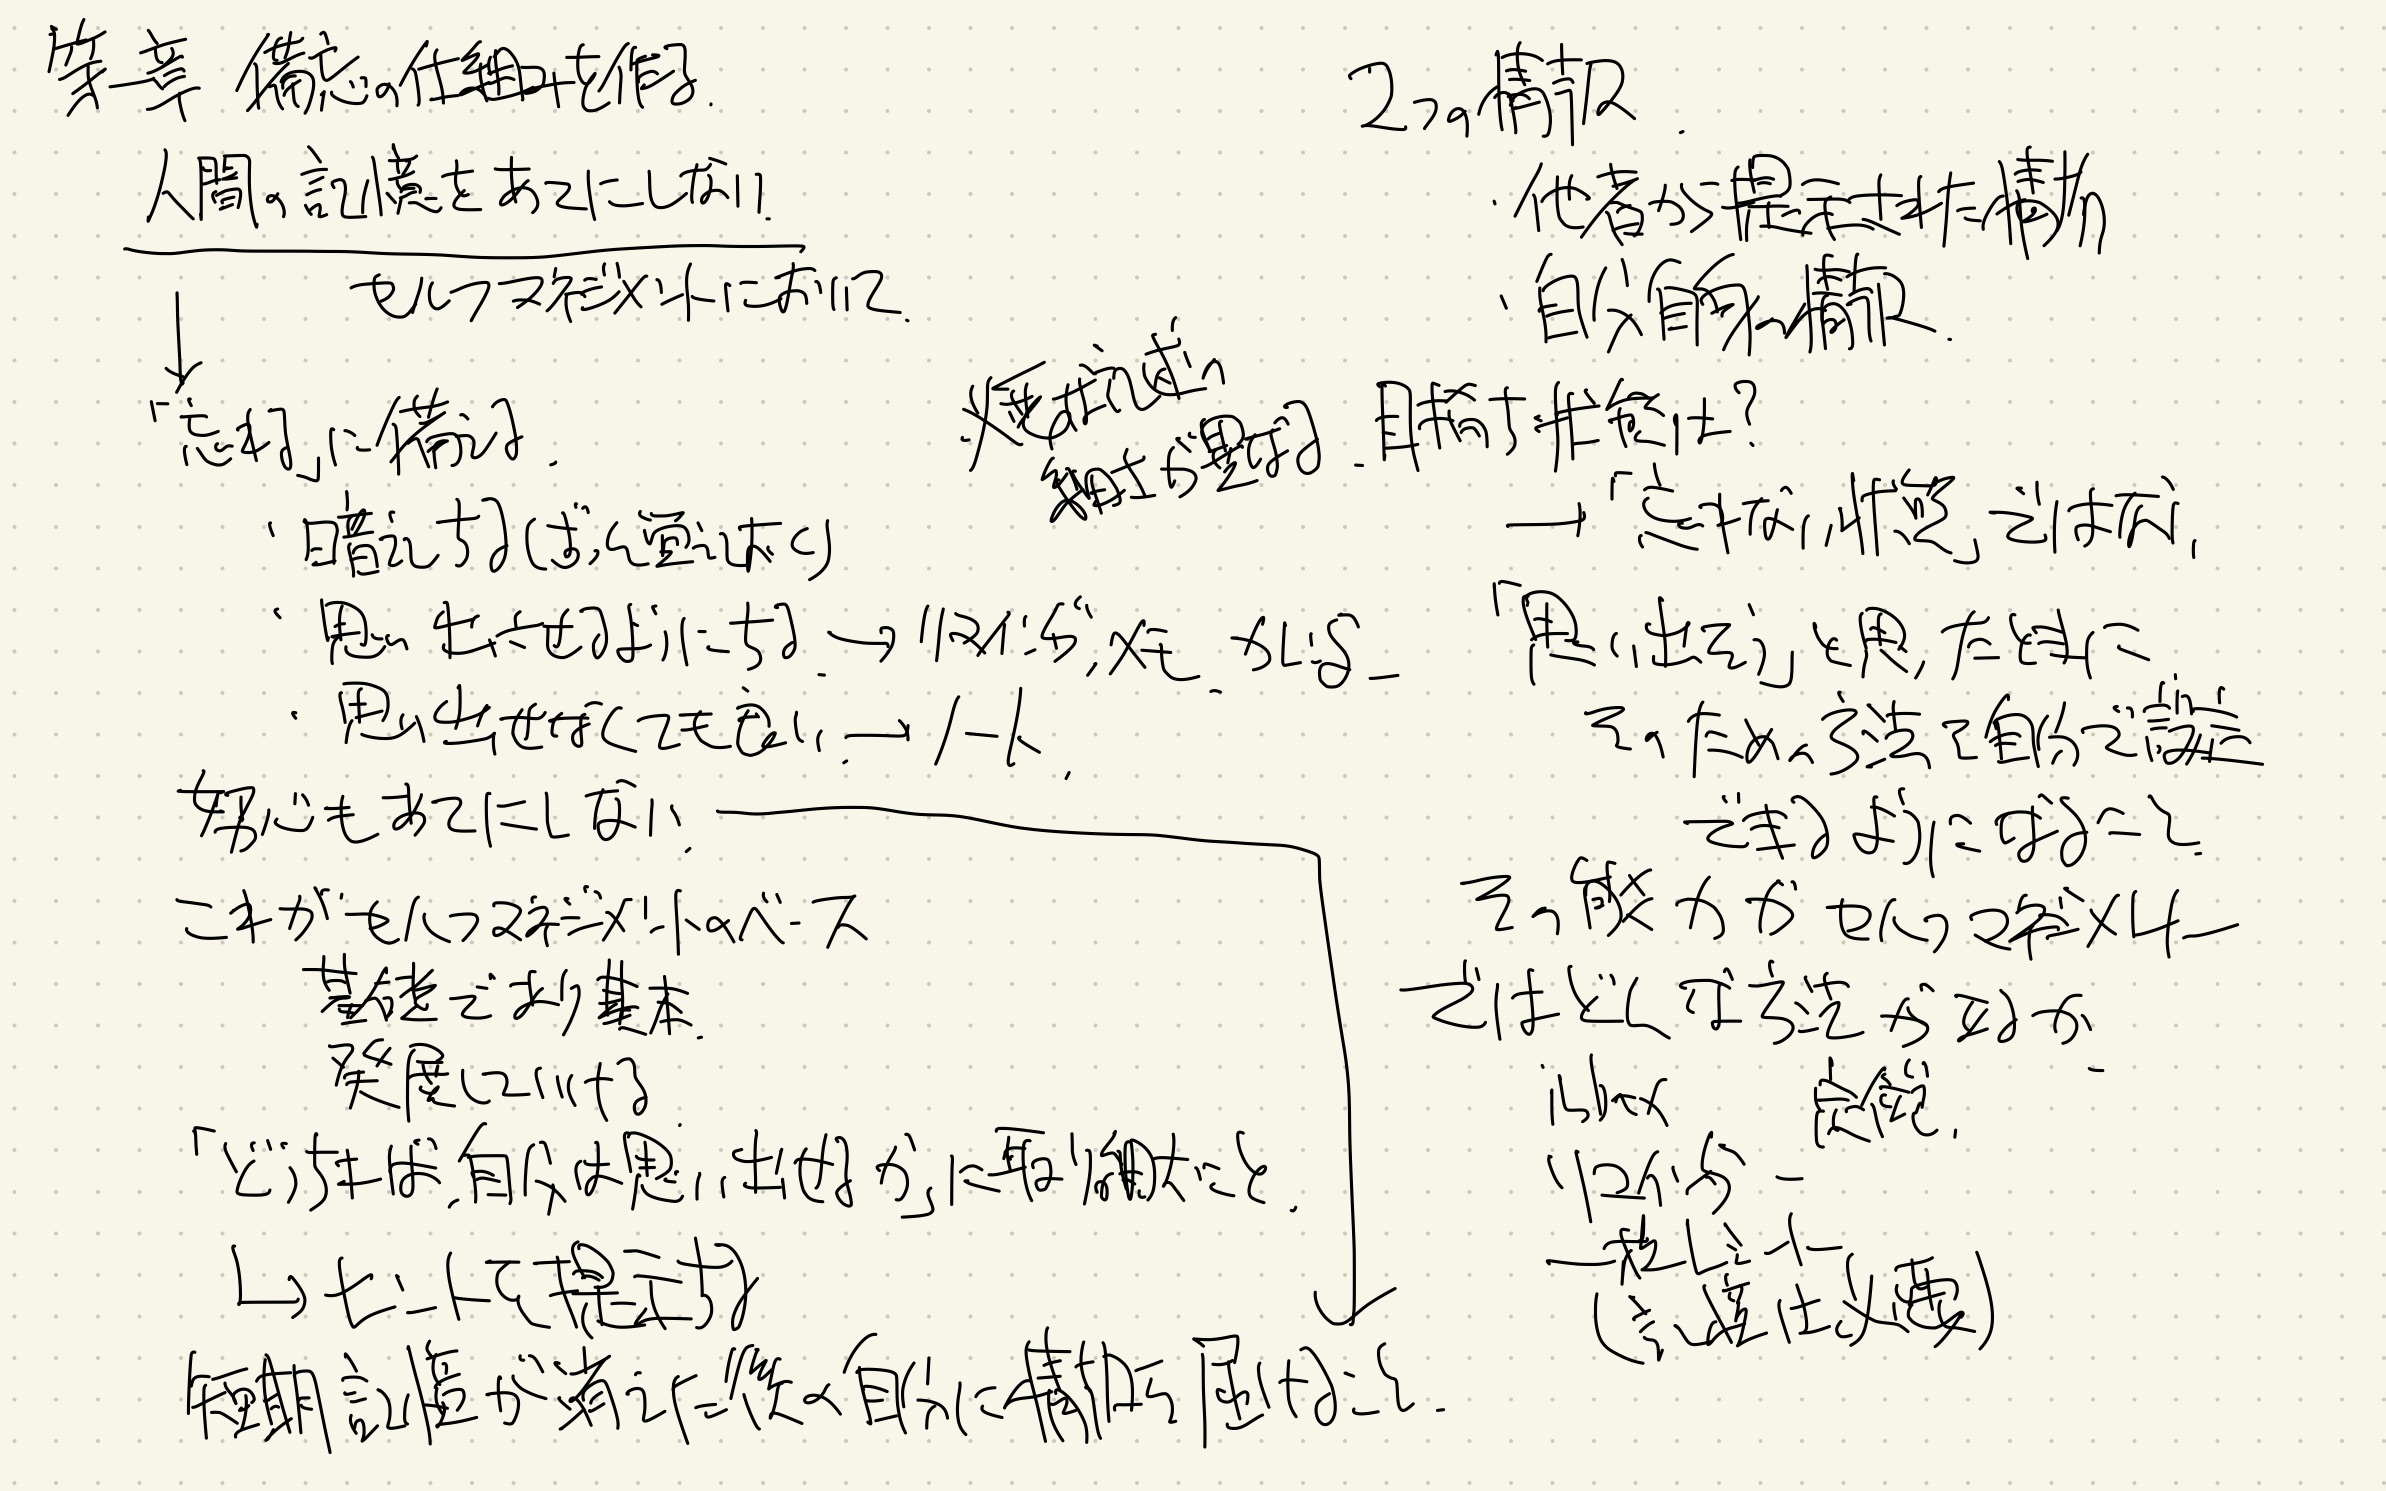 第一章 備忘の仕組みを作る.
人間の記憶をあてにしない.
セルフマネジメントにおいて.
↓
「忘れる」に備える.
・暗記する(ぜんぶ覚えておく)
・思い出させるようにする. → リマインダ, メモ. カレンダー
・思い出せなくても良い. → ノート.
努力もあてにしない.
これがセルフマネジメントのベース
基礎であり基本.
発展していける.
「どうすれば、自分は思い出せるか」に取り組むこと.
↳ ヒントを提示する
短期記憶が消えた後の自分に情報を届けること.
2つの情報.
・他者から提示された情報
・自分自身の情報.
仕組が異なる.
目指す状態は?
→「忘れない状態」ではない,
「思い出そう」と思ったときに,
そのための方法を自分で設定
できるようになること.
その能力がセルフマネジメント
ではどんな方法があるか.
inbox
リマインダー
(記憶は必要)